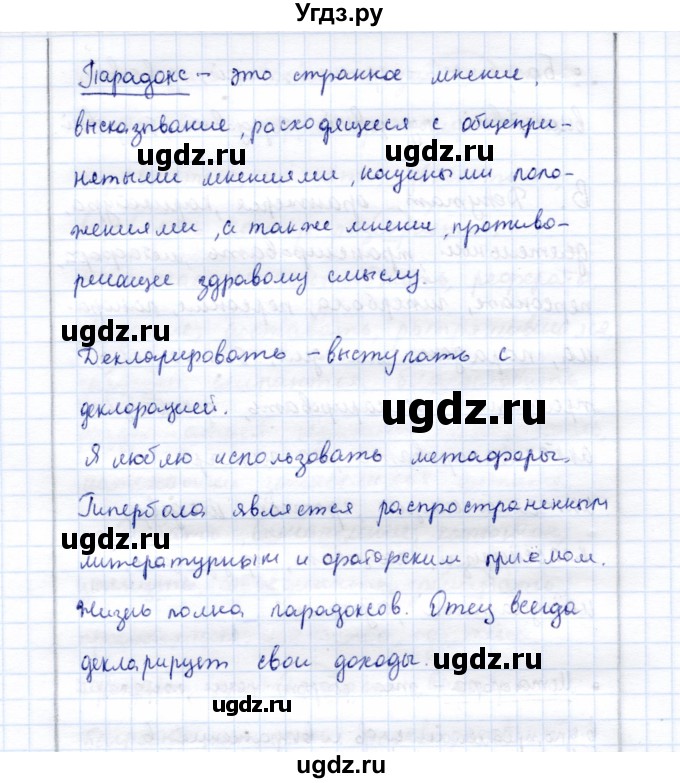 Угдз.ру
Парадокс – это странное мнение,
высказывание, расходящееся с общепри-
ugdz.ru ugdz.ru
нятыми мнениями, научными поло-
жениями, а также мнение, противо-
речащее здравому смыслу.
ugdz.ru ugdz.ru
Декларировать – выступать с
декларацией.
ugdz.ru
Я люблю использовать метафоры.
Гипербола является распространенным
ugdz.ru
литературным и ораторским приёмом.
Жизнь полна парадоксов. Отец всегда
декларирует свои доходы.
ugdz.ru
ugdz.ru
ugdz.ru